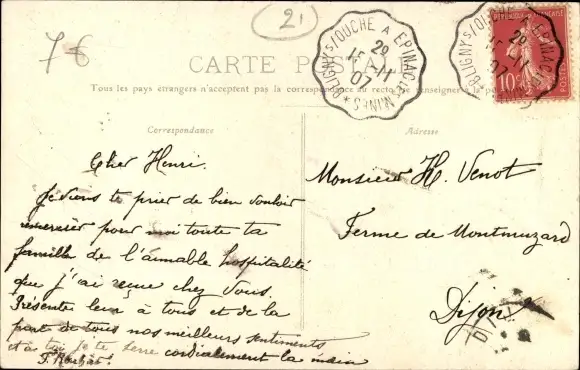 7€
2.
CARTE POSTALE
Tous les pays étrangers n'acceptent pas la correspondance au recto se renseigner à la
Correspondance
Adresse
BLIGNY s/OUCHE A EPINAC-LES-MINES
20
15-11
07
BLIGNY s/OUCHE A EPINAC
20
15-11
07
RÉPUBLIQUE FRANÇAISE
10
POSTES
Cher Henri.
Je viens te prier de bien vouloir
remercier pour moi toute ta
famille de l'aimable hospitalité
que j'ai reçue chez vous.
Présente leur à tous et de la
part de tous nos meilleurs sentiments
et à toi je te serre cordialement la main
Monsieur H. Venot
Ferme de Montmuzard
Dijon